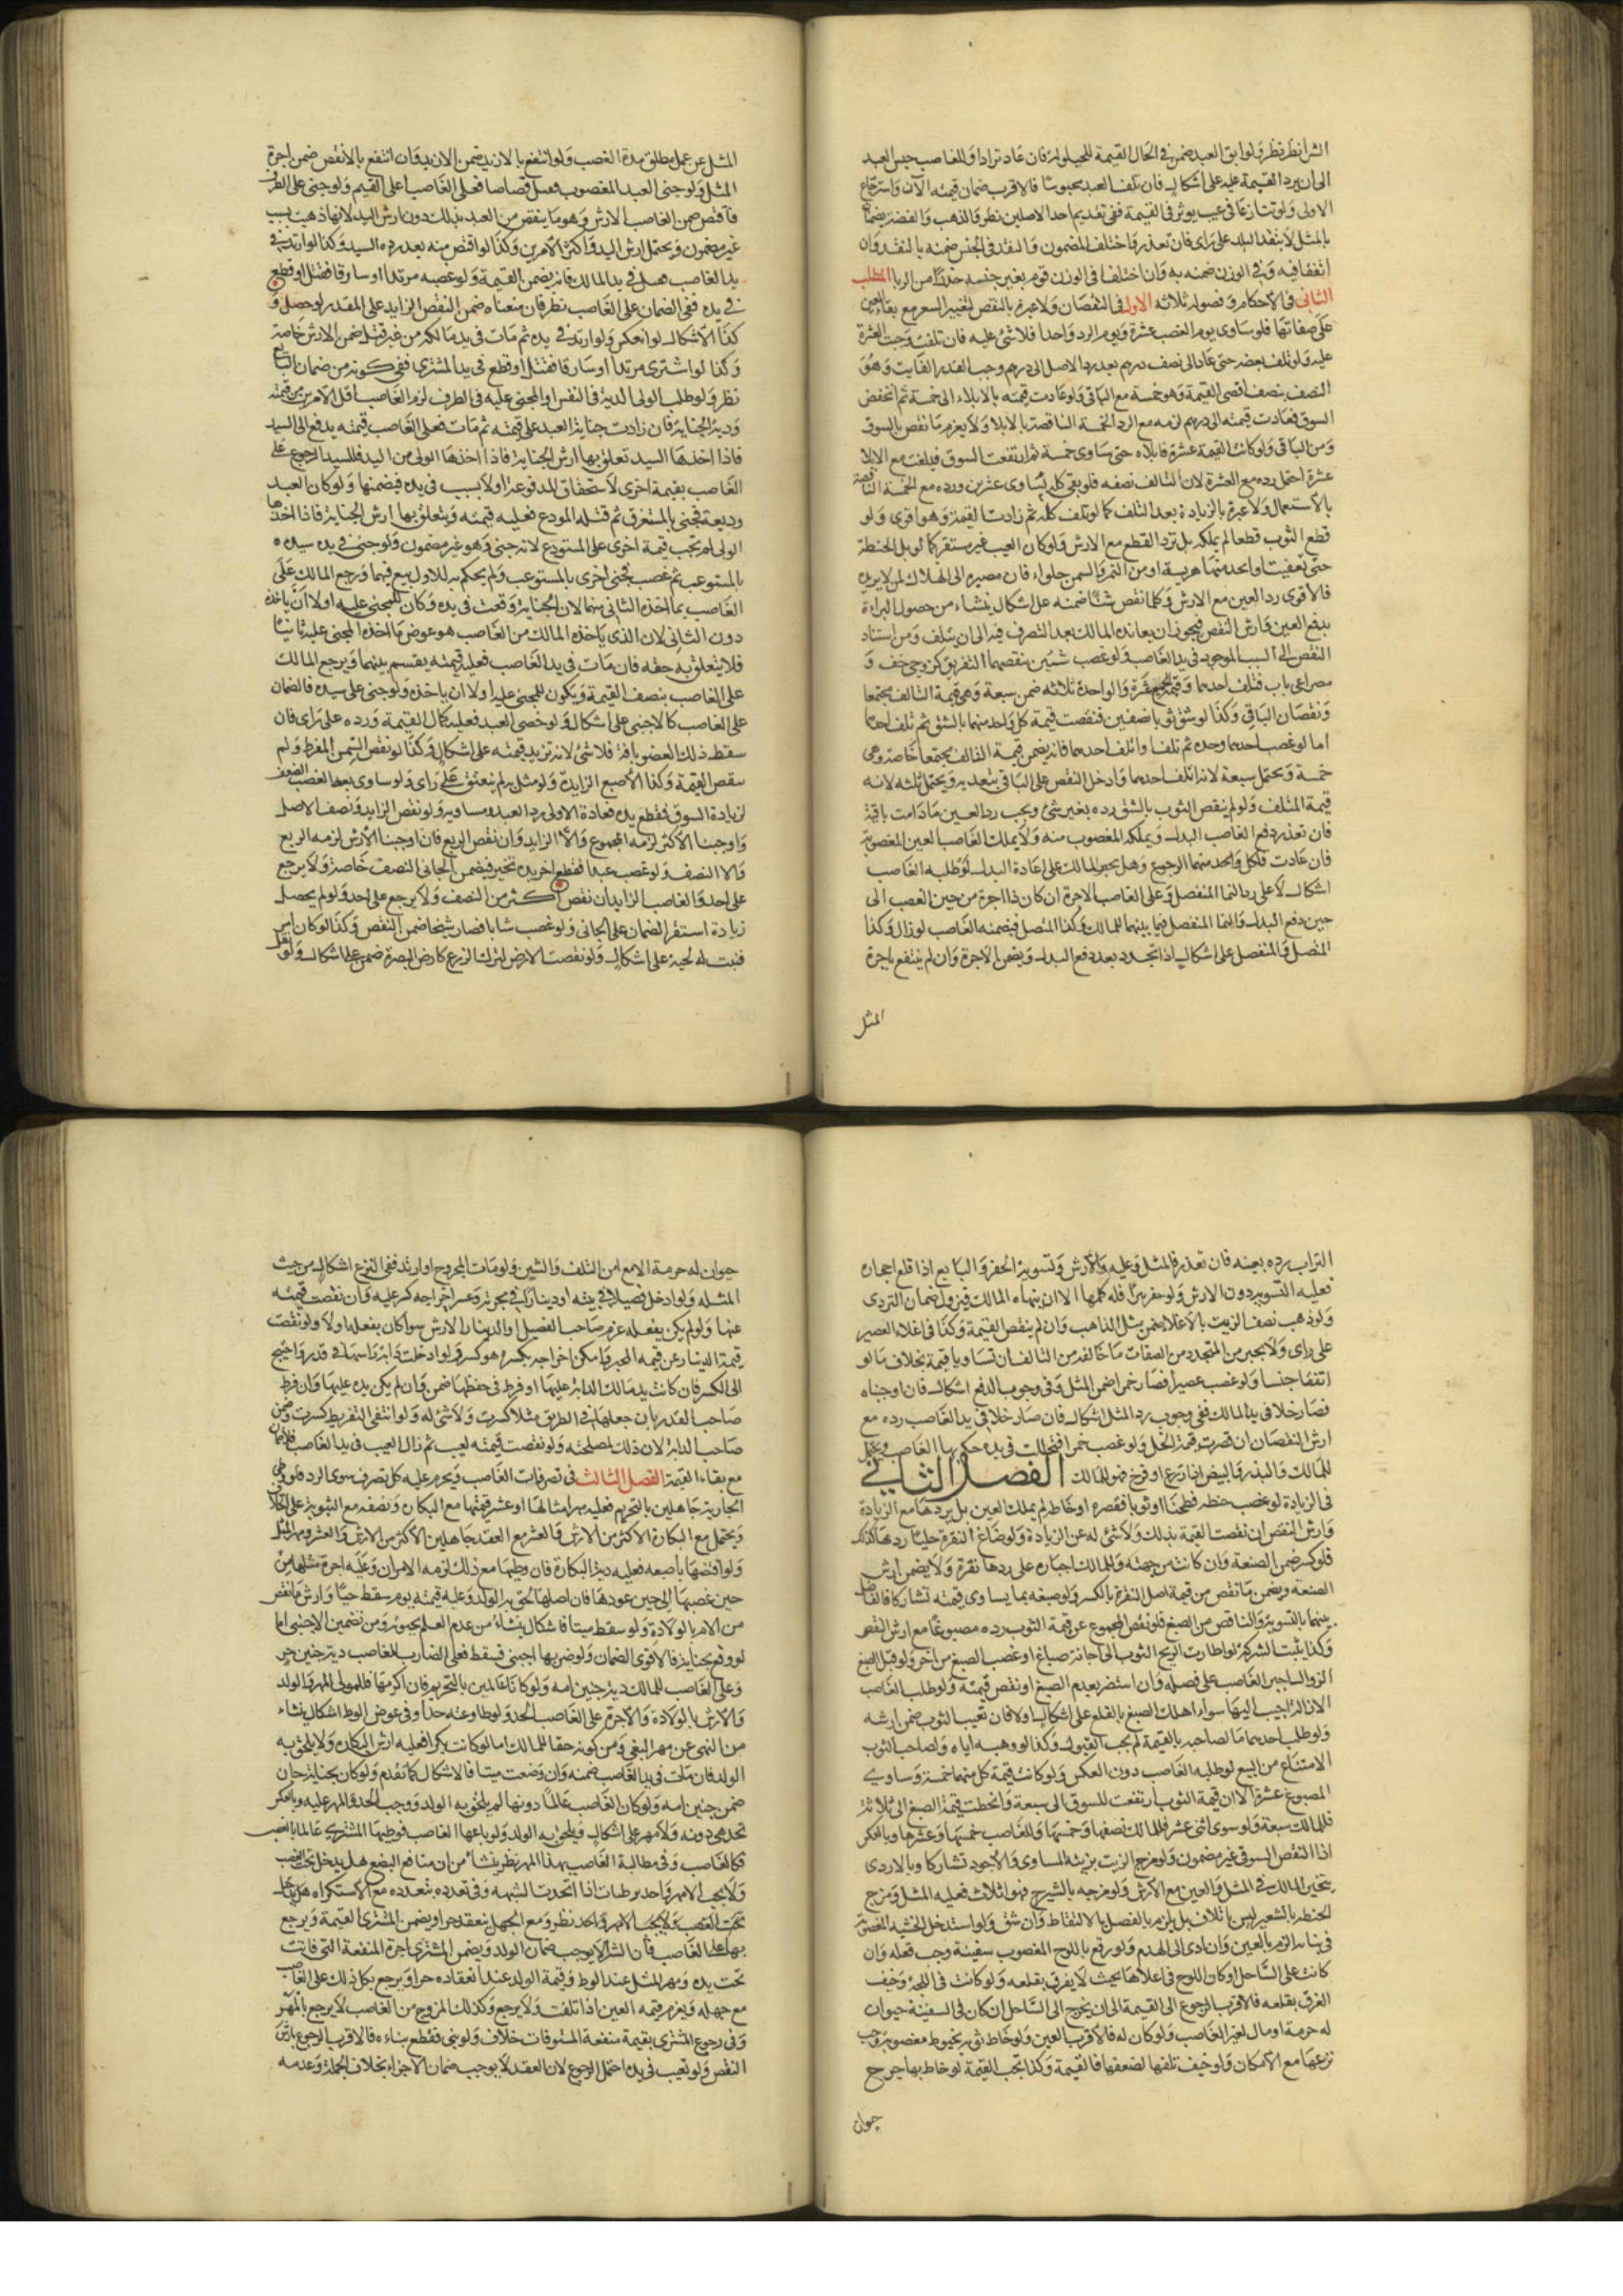 الشرائط نظر ولو ابق العبد ضمن في الحال القيمة للحيلولة فان عاد ترادا وللغاصب حبس العبد
الى ان يرد القيمة عليه على اشكال فان تلف العبد محبوسا فالاقرب ضمان قيمته الآن واسترجاع
الاولى ولو تنازعا في عيب يوثر في القيمة ففي تقديم احد الاصلين نظر والذهب والفضة يضمنان
بالمثل لا بنقد البلد على راى فان تعذر واختلف المضمون والنقد في الجنس ضمنه بالنقد وان
اتفقا فيه وفي الوزن ضمنه به وان اختلفا في الوزن قوم بغير جنسه حذرا من الربا المطلب
الثاني في الاحكام وفصوله ثلاثه الاول في النقصان ولا عبرة بالنقص لتغير السعر مع بقاء العين
على صفاتها فلو ساوى يوم الغصب عشرة ويوم الرد واحدا فلا شئ عليه فان تلفت وجبت العشرة
عليه ولو تلف بعضه حتى عاد الى نصف درهم بعد رد الاصل الى درهم وجب القدر الفايت وهو
النصف بنصف اقصى القيمة وهو خمسة مع الباقي ولو عادت قيمته بالابلاء الى خمسة ثم انخفض
السوق فعادت قيمته الى درهم لزمه مع الرد الخمسة الناقصة بالابلاء ولا يغرم ما نقص بالسوق
ومن الباقي ولو كانت القيمة عشرة فابلاه حتى يساوى خمسة ثم ارتفعت السوق فبلغت مع الابلاء
عشرة احتمل رده مع العشرة لان التالف نصفه فلو بقي كله لساوى عشرين ورده مع الخمسة الناقصة
بالاستعمال ولا عبرة بالزيادة بعد التلف كما لو تلف كله ثم زادت القيمة وهو اقوى ولو
قطع الثوب قطعا لم يملكه بل ترد القطع مع الارش ولو كان العيب غير مستقر كما لو بل الحنطة
حتى تعفنت او اتخذ منها هريسة او من التمر والسمن حلواء فان مصيره الى الهلاك لمن لا يريده
فالاقوى رد العين مع الارش وكلما نقص شئا ضمنه على اشكال ينشاء من حصول البراءة
بدفع العين وارش النقص فيجوز ان يعانده المالك بعد التصرف فيه الى ان يتلف ومن استناد
النقص الى السبب الموجود في يد الغاصب ولو غصب شيئين ينقصهما التفريق كزوجي خف و
مصراعي باب فتلف احدهما وقيمة الجميع عشرة والواحدة ثلاثه ضمن سبعة وهي قيمة التالف مجتمعا
ونقصان الباقي وكذا لو شق ثوبا نصفين فنقصت قيمة كل واحد منهما بالشق ثم تلف احدهما
اما لو غصب احدهما وحده ثم تلفا واتلف احدهما فانه يضمن قيمة التالف مجتمعا خاصة وهي
خمسة ويحتمل سبعة لانه اتلف احدهما وادخل النقص على الباقي بتعديه ويحتمل ثلثه لانه
قيمة المتلف ولو لم ينقص الثوب بالشق رده بغير شئ ويجب رد العين مادامت باقية
فان تعذر دفع الغاصب البدل ويملكه المغصوب منه ولا يملك الغاصب العين المغصوبة
فان عادت فلكل واحد منهما الرجوع وهل يجبر المالك على اعادة البدل لو طلبه الغاصب
اشكال لا على رد النماء المنفصل وعلى الغاصب الاجرة ان كان ذا اجرة من حين الغصب الى
حين دفع البدل والنماء المنفصل فيما بينهما للمالك وكذا المتصل فيضمنه الغاصب لو زال وكذا
المتصل والمنفصل على اشكال اذا تجدد بعد دفع البدل ويضمن الاجرة وان لم ينتفع باجرة
المثل
المثل عن عمل مطلق مدة الغصب ولو انتفع بالازيد ضمن الازيد وان انتفع بالانقص ضمن اجرة
المثل ولو جنى العبد المغصوب فقتل قصاصا فعلى الغاصب اعلى القيم ولو جنى على الطرف
فاقتص ضمن الغاصب الارش وهو ما ينقص من العبد بذلك دون ارش اليد لانها ذهبت بسبب
غير مضمون ويحتمل ارش اليد واكثر الامرين وكذا لو اقتص منه بعد رده السيد وكذا لو ارتد في
يد الغاصب فقتل في يد المالك فانه يضمن القيمة ولو غصبه مرتدا او سارقا فقتل او قطع
في يده ففي الضمان على الغاصب نظر فان منعناه ضمن النقص الزايد على المقدر لو حصل و
كذا الاشكال لو انعكس ولو ارتد في يده ثم مات في يد مالكه من غير قتل ضمن الارش خاصة
وكذا لو اشترى مرتدا او سارقا فقتل او قطع في يد المشترى ففي كونه من ضمان البايع
نظر ولو طلب الولى الدية في النفس او المجنى عليه في الطرف لزم الغاصب اقل الامرين من قيمته
ودية الجناية فان زادت جناية العبد على قيمته ثم مات فعلى الغاصب قيمته يدفع الى السيد
فاذا اخذها السيد تعلق بها ارش الجناية فاذا اخذها الولى من اليد فللسيد الرجوع على
الغاصب بقيمة اخرى لاستحقاق المدفوعة اولا بسبب في يده فيضمنها ولو كان العبد
وديعة فجنى بالمستغرق ثم قتله المودع فعليه قيمته ويتعلق بها ارش الجناية فاذا اخذها
الولى لم تجب قيمة اخرى على المستودع لانه جنى وهو غير مضمون ولو جنى في يد سيده
بالمستوعب ثم غصب فجنى اخرى بالمستوعب ولم يحكم به للاول بيع فيهما ورجع المالك على
الغاصب بما اخذه الثاني منهما لان الجناية وقعت في يده وكان للمجنى عليه اولا ان ياخذه
دون الثاني لان الذي ياخذه المالك من الغاصب هو عوض ما اخذه المجنى عليه ثانيا
فلا يتعلق به حقه فان مات في يد الغاصب فعليه قيمته يقسم بينهما ويرجع المالك
على الغاصب بنصف القيمة ويكون للمجنى عليه اولا ان ياخذه ولو جنى على سيده فالضمان
على الغاصب كالاجنبي على اشكال ولو خصى العبد فعليه كمال القيمة ورده على راى فان
سقط ذلك العضو بافة فلا شئ لانه تزيد قيمته على اشكال وكذا لو نقص السمن المفرط ولم
ينقص القيمة وكذا الاصبع الزايدة ولو مثل به لم ينعتق على راى ولو ساوى بعد الغصب الضعف
لزيادة السوق فقطع يده فعادة الاولى رد العبد ومساويه ولو نقص الزايد ونصف الاصل
واوجبنا الاكثر لزمه المجموع والا الزايد وان نقص الربع فان اوجبنا الارش لزمه الربع
والا النصف ولو غصب عبدا فقطع اخر يده تخير فيضمن الجاني النصف خاصة ولا يرجع
على احد والغاصب الزايد ان نقص اكثر من النصف ولا يرجع على احد ولو لم يحصل
زيادة استقر الضمان على الجاني ولو غصب شابا فصار شيخا ضمن النقص وكذا لو كان امرد
فنبت له لحية على اشكال ولو نقصت الارض لترك الزرع كارض البصرة ضمن على اشكال ولو نقل
التراب رده بعينه فان تعذر فالمثل وعليه والارش وتسوية الحفر والبايع اذا قلع احجاره
فعليه التسوية دون الارش ولو حفر بئرا فله طمها الا ان ينهاه المالك فيزول ضمان التردى
ولو ذهب نصف الزيت بالاغلاء ضمن مثل الذاهب وان لم ينقص القيمة وكذا في اغلاء العصير
على راى ولا يجبر من المتجدد من الصفات ما خالفه من التالف ان تساويا قيمة بخلاف ما لو
اتفقا جنسا ولو غصب عصيرا فصار خمرا ضمن المثل وفي وجوب الدفع اشكال فان اوجبناه
فصار خلا في يد المالك ففي وجوب رد المثل اشكال فان صار خلا في يد الغاصب رده مع
ارش النقصان ان قصرت قيمة الخل ولو غصب خمرا فتخللت في يده حكم بها الغاصب ويحتمل
للمالك والبذر والبيض اذا زرع او فرخ فهو للمالك الفصل الثاني
في الزيادة لو غصب حنطه فطحنها او ثوبا فقصره او خاطه لم يملك العين بل يردها مع الزيادة
وارش النقص ان نقصت القيمة بذلك ولا شئ له عن الزيادة ولو صاغ النقرة حليا ردها كذلك
فلو كسر ضمن الصنعة وان كانت من جهته وللمالك اجباره على ردها نقرة ولا يضمن ارش
الصنعة ويضمن ما نقص من قيمة اصل النقرة بالكسر ولو صبغه بما يساوى قيمته تشاركا فالفاضل
بينهما بالتسوية والناقص من الصبغ فلو نقص المجموع عن قيمة الثوب رده مصبوغا مع ارش النقص
وكذا يثبت الشركة لو اطارت الريح الثوب الى اجانة صباغ او غصب الصبغ من آخر ولو قبل الصبغ
الزوال اجبر الغاصب على فصله وان استضر بعدم الصبغ او نقص قيمته ولو طلب الغاصب
الازالة اجيب اليها سواء اهلك الصبغ بالقلع على اشكال اولا فان تعيب الثوب ضمن ارشه
ولو طلب احدهما ما لصاحبه بالقيمة لم يجب القبول وكذا لو وهبه اياه ولصاحب الثوب
الامتناع من البيع لو طلبه الغاصب دون العكس ولو كانت قيمة كل منهما خمسة وساوى
المصبوغ عشرة الا ان قيمة الثوب ارتفعت للسوق الى سبعة وانحطت قيمة الصبغ الى ثلاثة
فللمالك سبعة ولو سوى اثنى عشر فللمالك نصفها وخمسها وللغاصب خمسها وعشرها وبالعكس
اذا النقص السوقي غير مضمون ولو مزج الزيت بزيته المساوى والاجود تشاركا وبالاردى
يتخير المالك في المثل والعين مع الارش ولو مزجه بالشيرج فهو اتلاف فعليه المثل ومزج
الحنطه بالشعير ليس باتلاف بل يلزم بالفصل بالالتقاط وان شق ولو استدخل الخشبة المغصوبة
في بنائه الزم بالعين وان ادى الى الهدم ولو رقع باللوح المغصوب سفينة وجب قلعه وان
كانت على الساحل او كان اللوح في اعلاها بحيث لا يغرق بقلعه ولو كانت في اللجة وخيف
الغرق بقلعه فالاقرب الرجوع الى القيمة الى ان يخرج الى الساحل ان كان في السفينة حيوان
له حرمة او مال لغير الغاصب ولو كان له فالاقرب العين ولو خاط ثوبه بخيوط مغصوبة وجب
نزعها مع الامكان ولو خيف تلفها لضعفها فالقيمة وكذا تجب القيمة لو خاط بها جرح
حيوان
حيوان له حرمة الا مع امن التلف والشين ولو مات المجروح او ارتد ففي النزع اشكال من حيث
المثله ولو ادخل فصيلا في بيته او دينارا في محبرته وعسر اخراجه كسر عليه وان نقصت قيمته
عنها ولو لم يكن بفعله غرم صاحب الفصيل او الدينار الارش سواء كان بفعله اولا ولو نقصت
قيمة الدينار عن قيمه المحبرة وامكن اخراجه بكسره هو كسر ولو ادخلت دابة راسها في قدر واحتيج
الى الكسر فان كانت يد مالك الدابة عليها او فرط في حفظها ضمن وان لم يكن يده عليها وان فرط
صاحب القدر بان جعلها في الطريق مثلا كسرت ولا شئ له ولو انتفى التفريط كسرت وضمن
صاحب الدابة لان ذلك لمصلحته ولو نقصت قيمته لعيب ثم زال العيب في يد الغاصب فلا ضمان
مع بقاء القيمة الفصل الثالث في تصرفات الغاصب ويحرم عليه كل تصرف سوى الرد فلو وطى
الجارية جاهلين بالتحريم فعليه مهر امثالها او عشر قيمتها مع البكارة ونصفه مع الثيوبة على الخلاف
ويحتمل مع البكارة الاكثر من الارش والعشر مع العقد جاهلين الاكثر من الارش والعشر ومهر المثل
ولو افتضها باصبعه فعليه دية البكارة فان وطيها مع ذلك لزمه الامران وعليه اجرة مثلها من
حين غصبها الى حين عودها فان احبلها لحق به الولد وعليه قيمته يوم سقط حيا وارش ما نقص
من الام بالولادة ولو سقط ميتا فاشكال ينشاء من عدم العلم بحيوته ومن تضمين الاجنبي اما
لو وقع بجناية فالاقوى الضمان ولو ضربها اجنبي فسقط فعلى الضارب للغاصب دية جنين حر
وعلى الغاصب للمالك دية جنين امه ولو كانا عالمين بالتحريم فان اكرهها فللمولى المهر والولد
والارش بالولادة والاجرة وعلى الغاصب الحد ولو طاوعته حدا وفي عوض الوطء اشكال ينشاء
من النهى عن مهر البغى ومن كونه حقا للمالك اما لو كانت بكرا فعليه ارش البكارة ولا يلحق به
الولد فان مات في يد الغاصب ضمنه وان وضعت ميتا فالاشكال كما تقدم ولو كان بجناية جان
ضمن جنين امه ولو كان الغاصب عالما دونها لم يلحق به الولد ووجب الحد والمهر عليه وبالعكس
تحد هي دونه ولا مهر على اشكال ويلحق به الولد ولو باعها الغاصب فوطيها المشترى عالما بالغصب
فكالغاصب وفي مطالبة الغاصب بهذا المهر نظر ينشاء من ان منافع البضع هل يدخل تحت الغصب
ولا يجب الا مهر واحد بوطيات اذا اتحدت الشبهه وفي تعدده بتعدده مع الاستكراه نظر
تحت الغصب ولا يجب الا مهر واحد نظر ومع الجهل ينعقد حرا ويضمن المشترى القيمة ويرجع
بها على الغاصب فان الشراء لا يوجب ضمان الولد ويضمن المشترى اجرة المنفعة التي فاتت
تحت يده ومهر المثل عند الوطء وقيمة الولد عند انعقاده حرا ويرجع بكل ذلك على الغاصب
مع جهله ويغرم قيمه العين اذا تلفت ولا يرجع وكذلك المزوج من الغاصب لا يرجع بالمهر
وفي رجوع المشترى بقيمة منفعة المستوفات خلاف ولو بنى فقطع بناءه فالاقرب الرجوع بارش
النقص ولو تعيب في يده احتمل الرجوع لان العقد لا يوجب ضمان الاجزاء بخلاف الجملة وعدمه